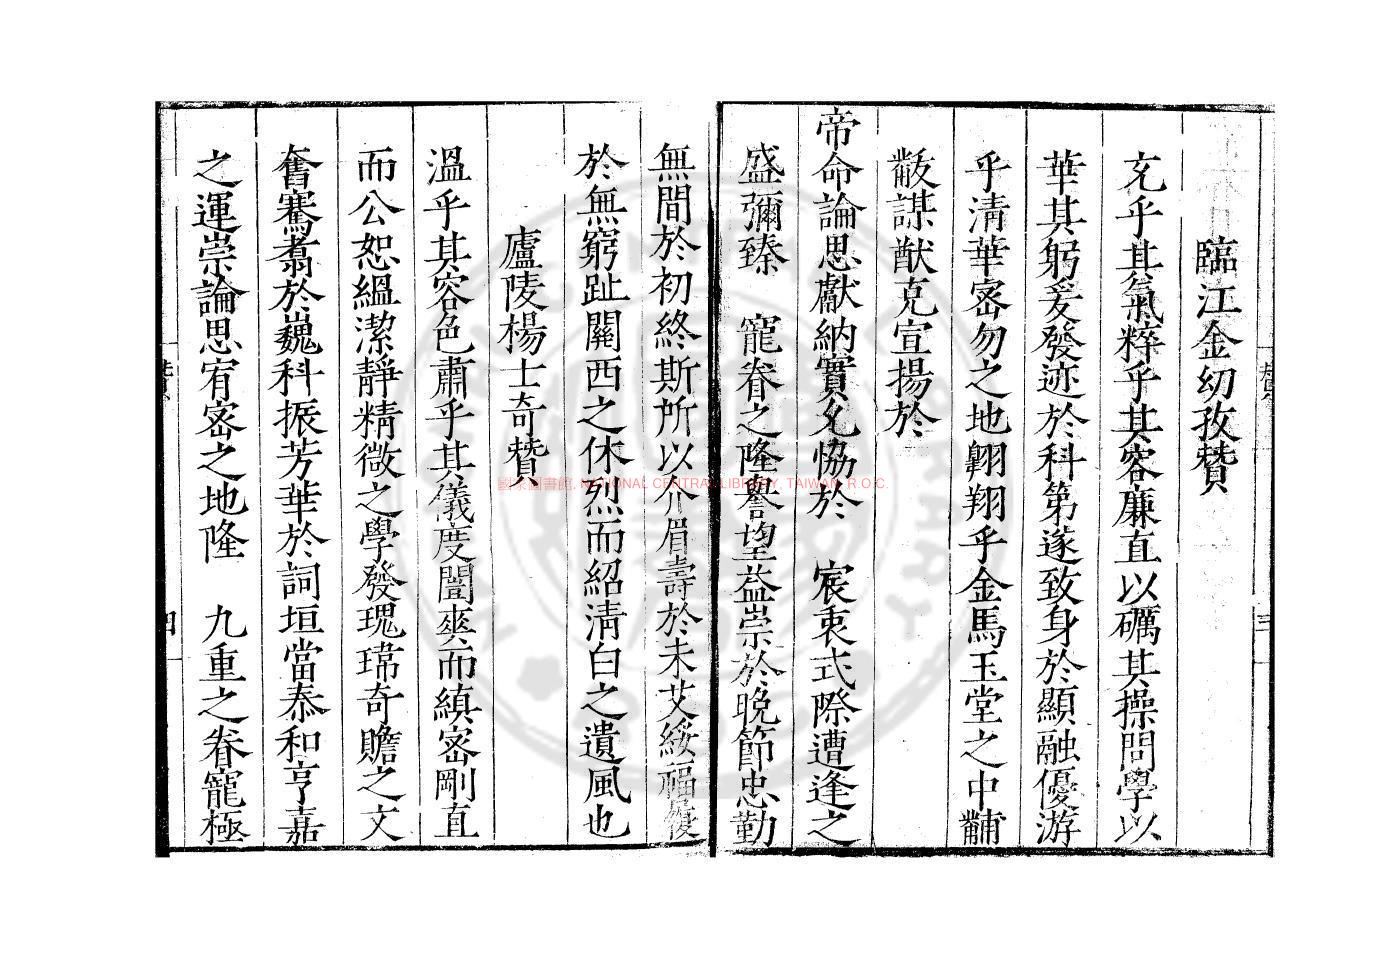 臨江金幼孜贊
充乎其氣粹乎其容廉直以礪其操問學以
華其躬爰發迹於科第遂致身於顯融優游
乎清華密勿之地翱翔乎金馬玉堂之中黼
黻謀猷克宣揚於
帝命論思獻納實允恊於　宸衷式際遭逢之
盛彌臻　寵眷之隆譽望益崇於晚節忠勤
無間於初終斯所以介眉壽於未艾綏福履
於無窮趾關西之休烈而紹清白之遺風也
廬陵楊士奇贊
溫乎其容色肅乎其儀度闓爽而縝密剛直
而公恕縕潔靜精微之學發瑰瑋奇贍之文
奮騫翥於巍科振芳華於詞垣當泰和亨嘉
之運崇論思宥密之地隆　九重之眷寵極
三
四
國家圖書館, NATIONAL CENTRAL LIBRARY, TAIWAN, R.O.C.